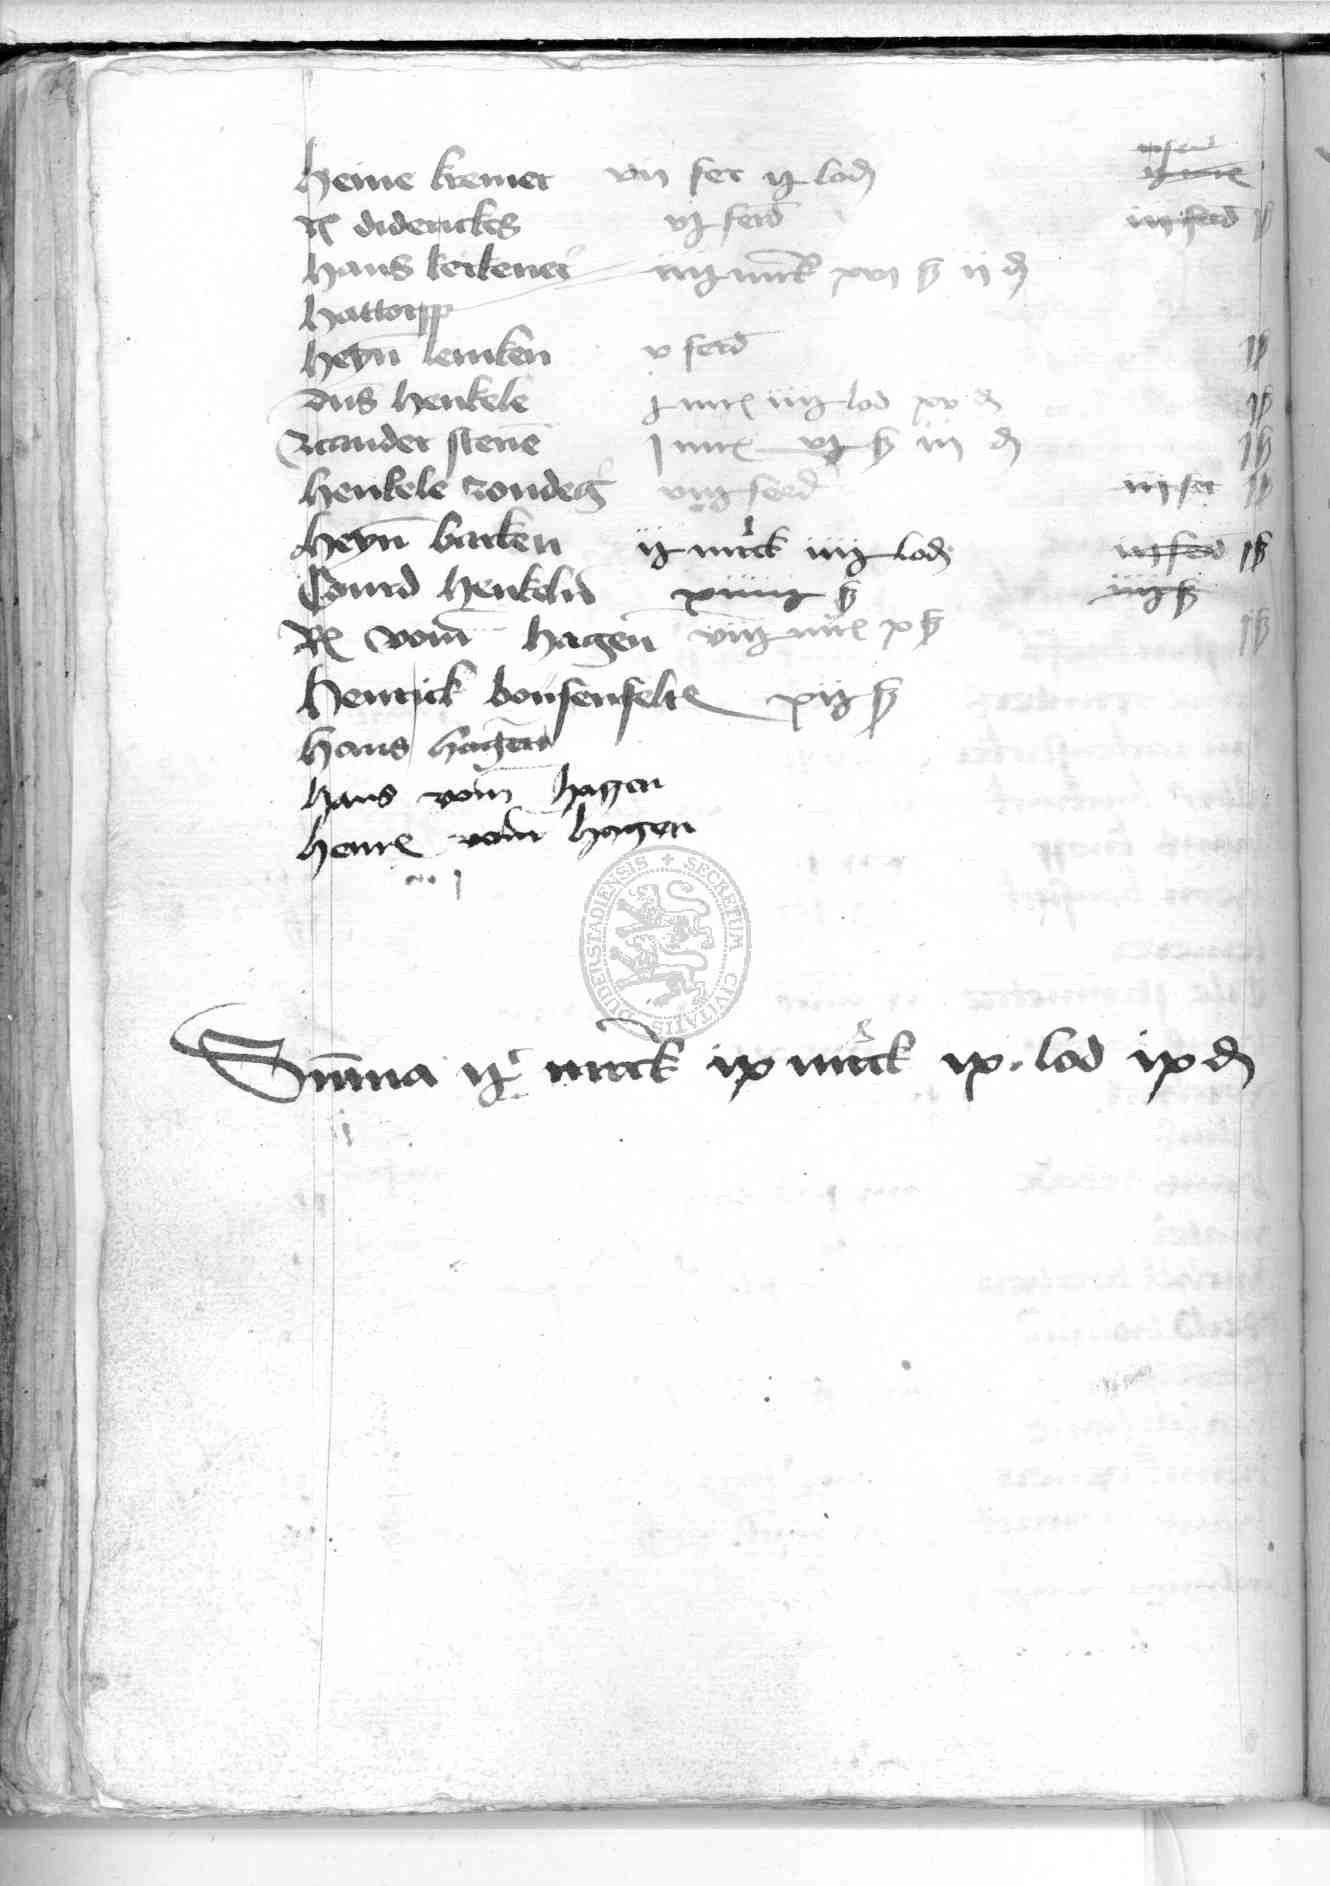 heine kremer vij fer ij lod iij ferd ij mr
R diderickes vj ferd iij ferd ß
hans kerkener iiij mrck xvj ß ij d
hattorpp
heyn lemken v ferd j ß
dns henkele j mr iiij lod xv d j ß
Zcander stene j mr vj ß iij d j ß
henkele zondeg viij ferd iij fer j ß
heyn barken ij mrck iiij lod iij ferd j ß
Courd henkelin xiiiij ß iiij ß
R vom hagen viij mr x ß j ß
Henrick bonsenfelt xij ß
hans hagen
hans vom hagen
henr vom hagen
SECRETUM CIVITATIS DUDERSTADIENSIS
Summa ij c mrck ix mrck ix lod ix d